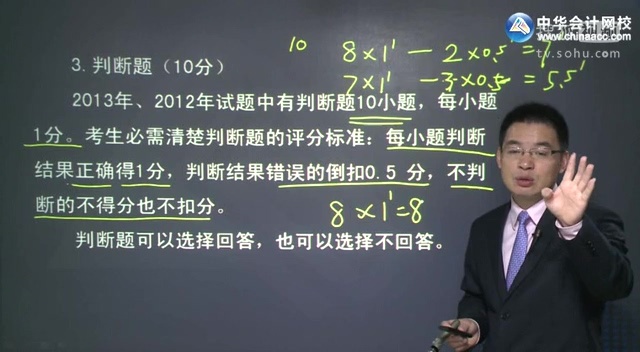 中华会计网校
www.chinaacc.com
tv.sohu.com
10
8×1' - 2×0.5 = 7'
7×1' - 3×0.5 = 5.5'
3.判断题（10分）
2013年、2012年试题中有判断题10小题，每小题
1分。考生必需清楚判断题的评分标准：每小题判断
结果正确得1分，判断结果错误的倒扣0.5 分，不判
断的不得分也不扣分。
8×1'=8
判断题可以选择回答，也可以选择不回答。